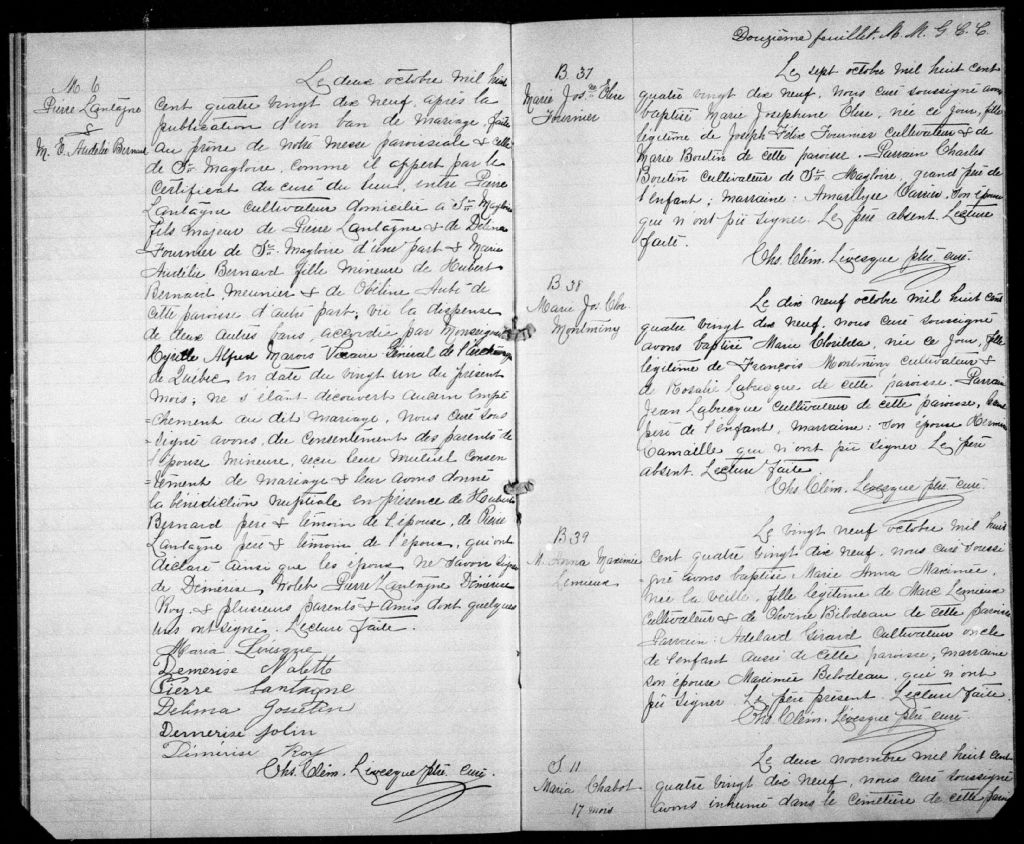 M. 6
Pierre Lantagne
&
M. E. Aurélie Bernard
Le deux octobre mil huit
cent quatre vingt dix neuf, après la
publication d'un ban de mariage, faite
au prône de notre messe paroissiale & celle
de St. Magloire, comme il appert par le
certificat du curé du lieu, entre Pierre
Lantagne cultivateur domicilié à St. Magloire
fils majeur de Pierre Lantagne & de Délina
Fournier de St. Magloire d'une part & Marie
Aurélie Bernard fille mineure de Hubert
Bernard, Meunier & de Obéline Aubé de
cette paroisse d'autre part; vu la dispense
de deux autres bans, accordée par Monseigneur
Cyrille Alfred Marois Vicaire Général de l'archevêque
de Québec en date du vingt un du présent
mois; ne s'étant découvert aucun empê
=chement au dit mariage, nous curé sous
=signé avons, du consentement des parents de
l'épouse mineure, reçu leur mutuel consen
=tement de mariage & leur avons donné
la bénédiction nuptiale en présence de Hubert
Bernard père & témoin de l'épouse, de Pierre
Lantagne père & témoin de l'époux, qui ont
déclaré ainsi que les époux ne savoir signer
de Démérise Nolett Pierre Lantagne Démérise
Roy, & plusieurs parents & amis dont quelques
uns ont signé. Lecture faite.
Maria Levesque
Demerise Nolette
Pierre Lantagne
Delima Gosselin
Demerise Jolin
Démérise Roy
Chs. Clém. Lévesque ptre. curé.
Douzième feuillet. M. M. G. C. C.
B 37
Marie Jos.ne Elise
Fournier
Le sept octobre mil huit cent
quatre vingt dix neuf, nous curé soussigné avons
baptisé Marie Josephine Elise, née ce jour, fille
légitime de Joseph Felix Fournier cultivateur & de
Marie Boutin de cette paroisse. Parrain Charles
Boutin cultivateur de St. Magloire, grand père de
l'enfant; Marraine: Amarillyse Carrier son épouse
qui n'ont pu signer. Le père absent. Lecture
faite.
Chs. Clém. Lévesque ptre. curé.
B 38
Marie Jos. Clor.
Montminy
Le dix neuf octobre mil huit cent
quatre vingt dix neuf, nous curé soussigné
avons baptisé Marie Clorilda, née ce jour, fille
légitime de François Montminy cultivateur &
de Rosalie Labrecque de cette paroisse. Parrain
Jean Labrecque cultivateur de cette paroisse,
père de l'enfant, marraine: son épouse
qui n'ont pu signer Le père
absent. Lecture faite.
Chs Clém. Lévesque ptre. curé.
B 39
M. Anna Maximée
Lemieux
Le vingt neuf octobre mil huit
cent quatre vingt dix neuf, nous curé soussi
gné avons baptisé Marie Anna Maximée,
née la veille, fille légitime de Marc Lemieux
cultivateur & de Olivine Bilodeau de cette paroisse
Parrain: Adelard Girard cultivateur oncle
de l'enfant aussi de cette paroisse; marraine
son épouse Maximée Bilodeau, qui n'ont
pu signer. Le père présent. Lecture faite.
Chs. Clém. Lévesque ptre. curé.
S. 11
Maria Chabot
17 mois
Le deux novembre mil huit cent
quatre vingt dix neuf, nous curé soussigné
avons inhumé dans le cimetière de cette paroisse